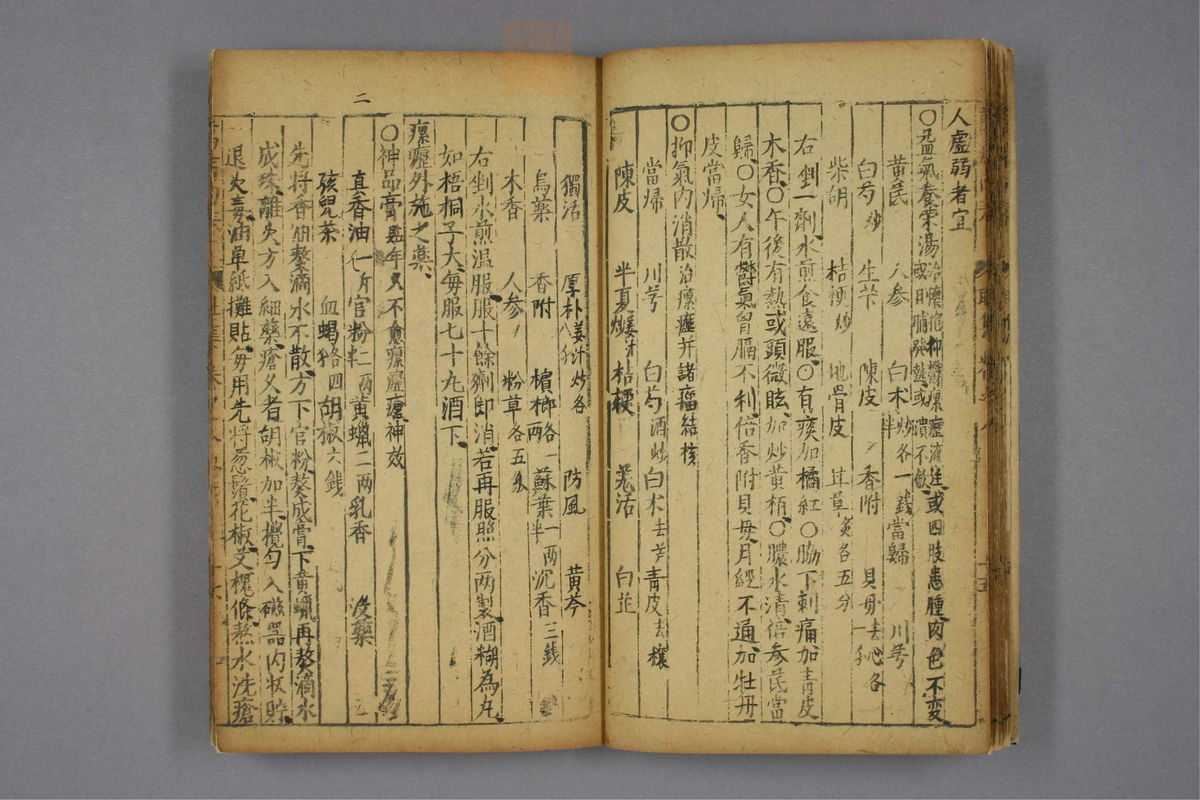 人虛弱者宜
○益氣養榮湯治懷抱抑鬱瘰癧流注或四肢患腫肉色不变
或日晡發熱或潰不歛
黃芪 人參 白朮炒各一錢 當歸 川芎
白芍炒 生芐 陳皮 香附 貝母去心各一
柴胡 桔梗炒 地骨皮 甘草炙各五分
右剉一劑水煎食遠服○有痰加橘紅○脇下刺痛加青皮
木香○午後有熱或頭微眩加炒黃栢○膿水清倍參芪當
歸○女人有鬱氣胷膈不利倍香附貝母月經不通加牡丹
皮當歸
○抑氣内消散治瘰癧并諸瘤結核
當帰 川芎 白芍酒炒 白朮去芦 青皮去穰
陳皮 半夏姜汁炒 桔梗 羌活 白芷
獨活 厚朴姜汁炒各 防風 黃芩
烏藥 香附 檳榔各一兩 蘇葉一兩半 沉香三錢
木香 人參 粉草各五分
右剉水煎温服服十餘劑即消若再服照分两製酒糊為丸
如梧桐子大每服七十九酒下
瘰癧外施之藥
○神品膏治年久不愈瘰癧瘡神效
真香油一斤 官粉二两半 黃蠟二两 乳香 没藥
孩兒茶 血蝎各四 胡椒六錢
先將香油熬滴水不散方下官粉熬成膏下黄蠟再熬滴水
成珠離火方入細藥瘡久者胡椒加半攪勻入磁器内收貯
退火毒油单紙攤貼每用先将葱鬚花椒艾槐條熬水洗瘡
二